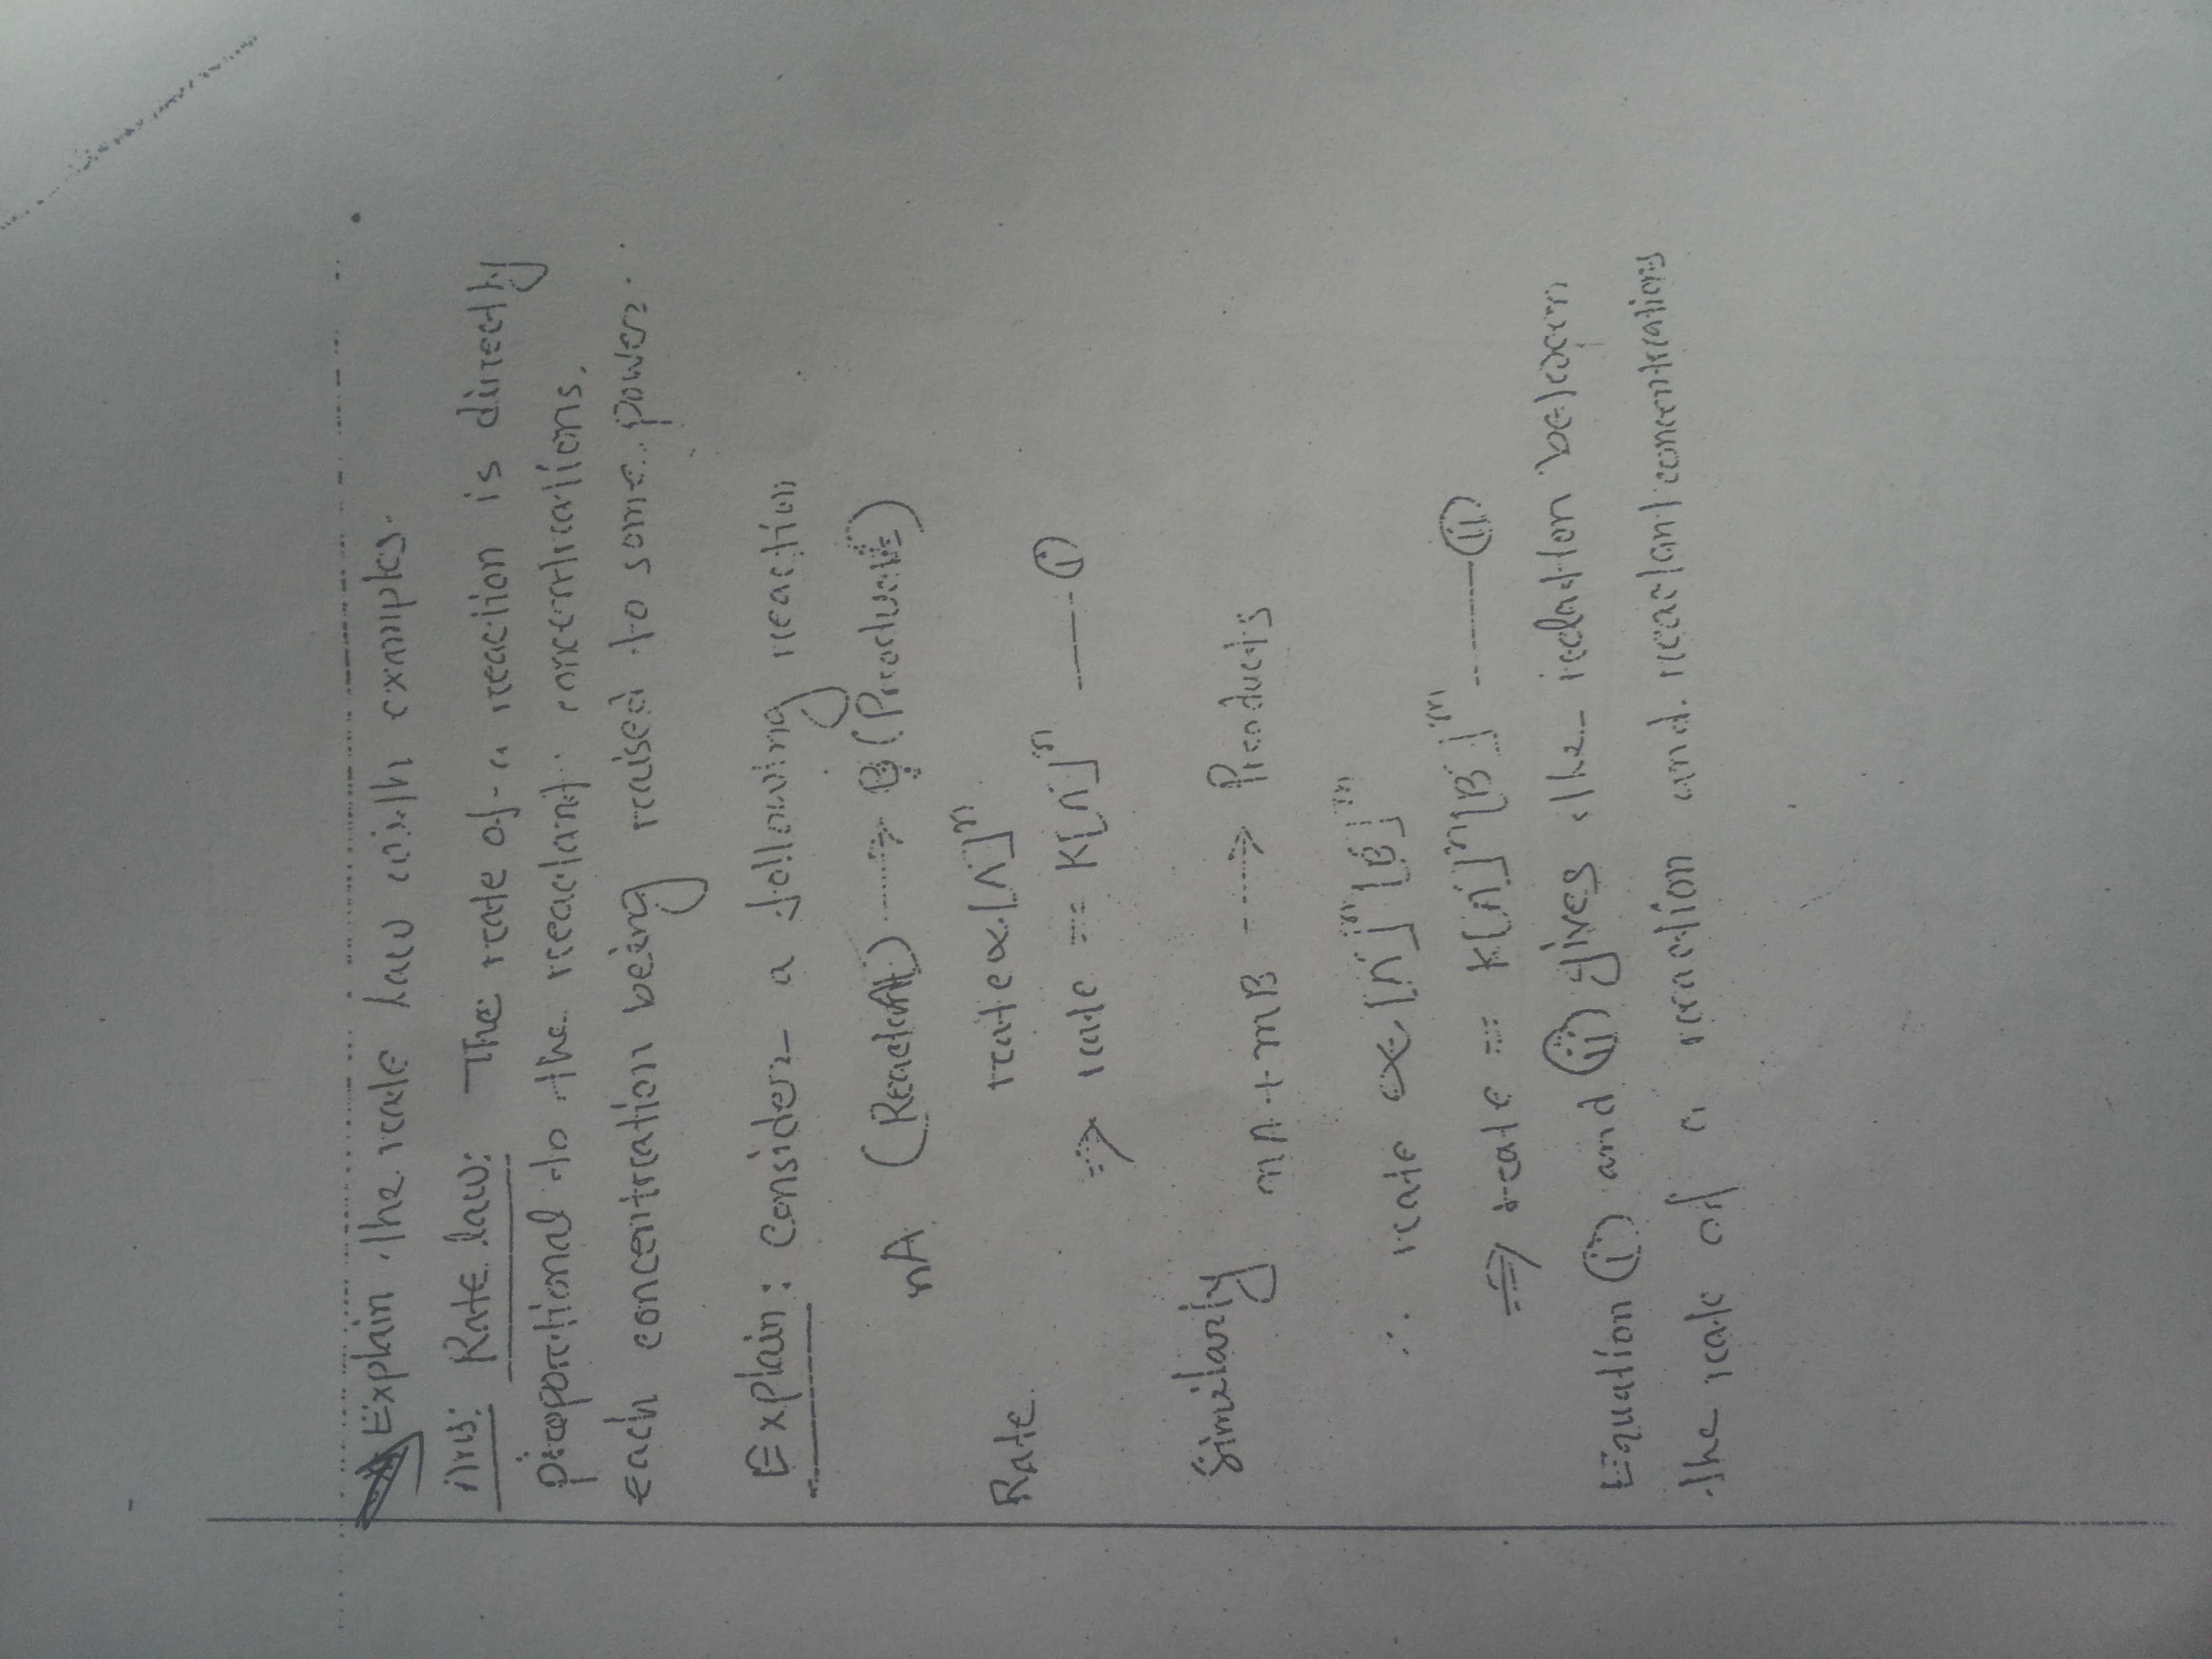 Explain the rate law with examples.
Ans: Rate law: The rate of a reaction is directly
proportional to the reactant concentrations.
each concentration being raised to some power.
Explain: Consider a following reaction
nA (Reactant) → B (Products)
Rate rate ∝ [A]ⁿ
⇒ rate = K[A]ⁿ —— (i)
Similarly
nA + mB → Products
∴ rate ∝ [A]ⁿ [B]ᵐ
⇒ rate = K[A]ⁿ [B]ᵐ —— (ii)
Equation (i) and (ii) gives the relation between
the rate of a reaction and reactant concentrations